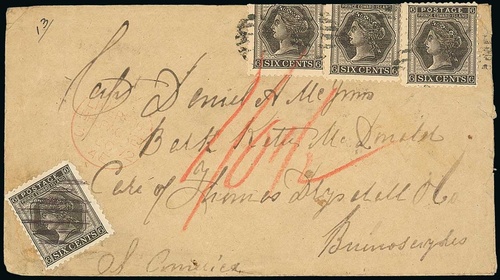 13
POSTAGE
PRINCE EDWARD ISLAND
SIX CENTS
POSTAGE
PRINCE EDWARD ISLAND
SIX CENTS
POSTAGE
PRINCE EDWARD ISLAND
SIX CENTS
Capt Daniel A McInnis
Bark Katey McDonald
Care of Thomas Drysdall & Co
Buenosayres
S. America
POSTAGE
SIX CENTS